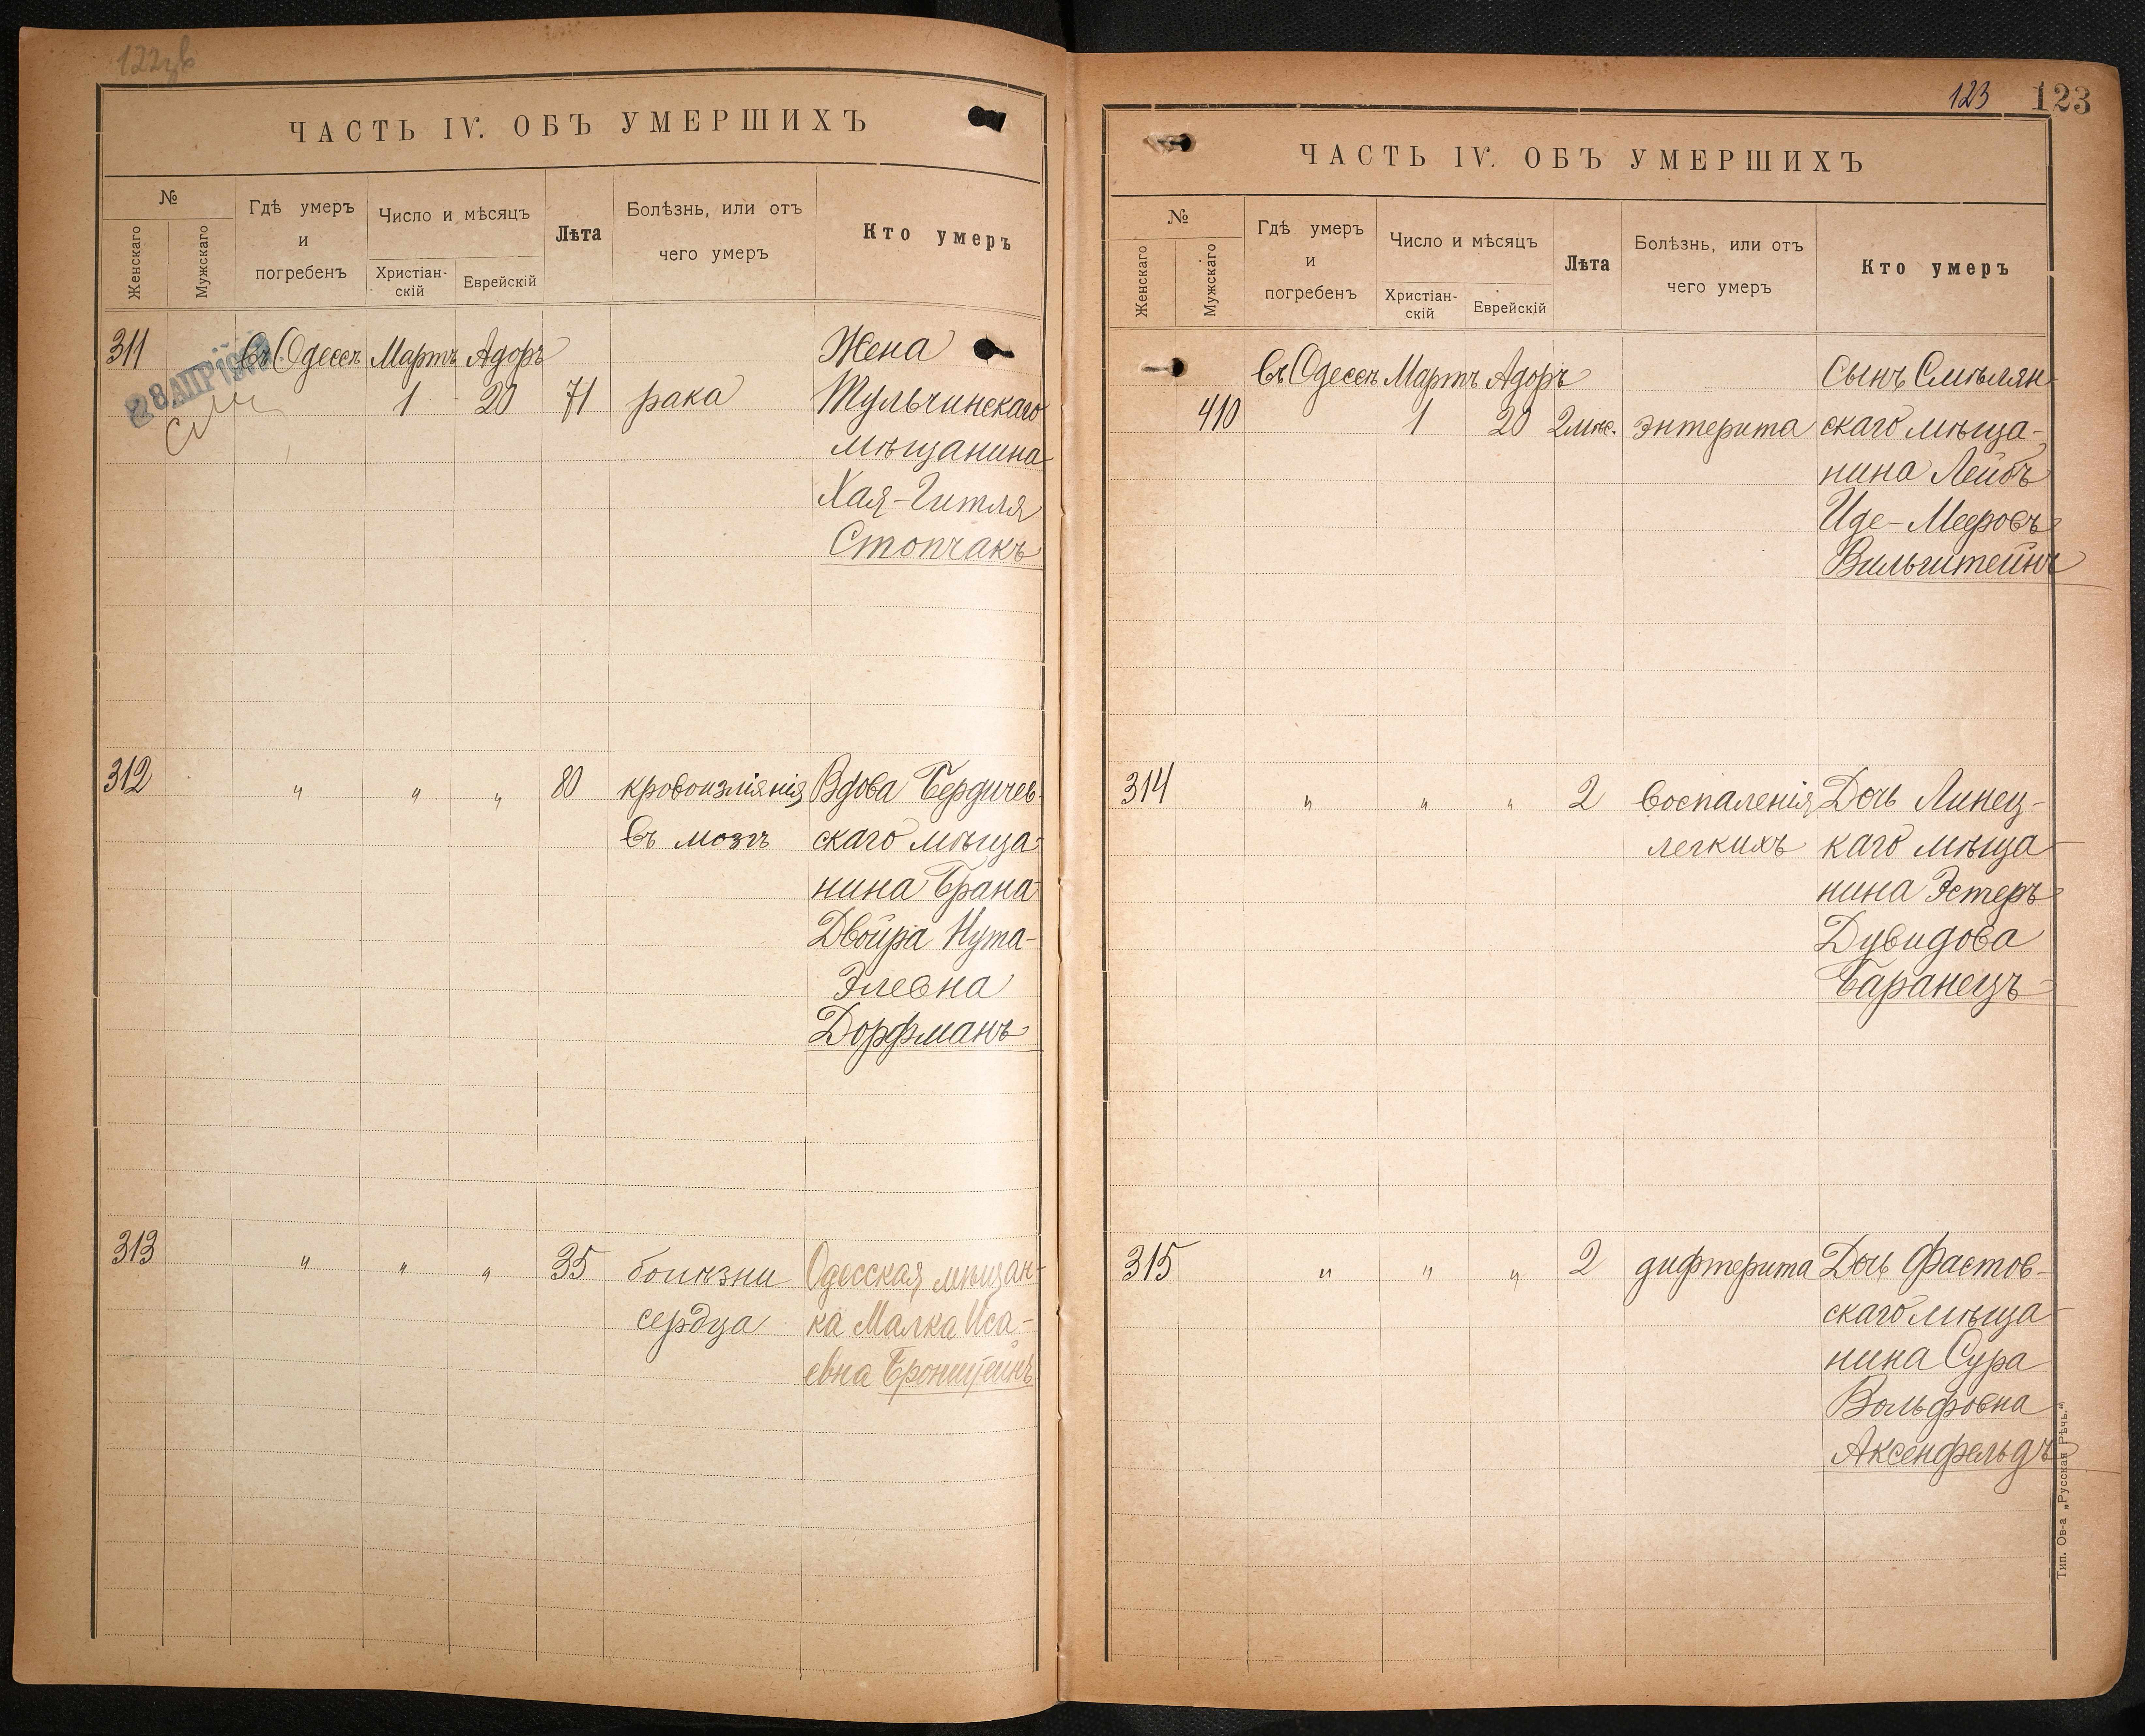 ЧАСТЬ IV. ОБЪ УМЕРШИХЪ
№
Женскаго
Мужскаго
Гдѣ умеръ
и
погребенъ
Число и мѣсяцъ
Христіан-
скій
Еврейскій
Лѣта
Болѣзнь, или отъ
чего умеръ
Кто умеръ
311 въ Одессѣ Мартъ Адоръ Жена
1 20 71 рака Тульчинскаго
мѣщанина
Хая-Гитля
Стопчакъ
312 " " " 80 кровоизліянія Вдова Бердичев-
въ мозгъ скаго мѣща-
нина Брана-
Двойра Нута-
Элевна
Дорфманъ
313 " " " 35 болѣзни Одесская мѣщан-
сердца ка Малка Иса-
евна Бронштейнъ
123 123
ЧАСТЬ IV. ОБЪ УМЕРШИХЪ
№
Женскаго
Мужскаго
Гдѣ умеръ
и
погребенъ
Число и мѣсяцъ
Христіан-
скій
Еврейскій
Лѣта
Болѣзнь, или отъ
чего умеръ
Кто умеръ
въ Одессѣ Мартъ Адоръ Сынъ Смѣлян-
410 1 20 2 мѣс. энтерита скаго мѣща-
нина Лейбъ
Иде-Меровъ
Вильштейнъ
314 " " " 2 воспаленія Дочь Линец-
легкихъ каго мѣща-
нина Эстеръ
Дувидова
Баранецъ
315 " " " 2 дифтерита Дочь Фастов-
скаго мѣща-
нина Сура
Вольфовна
Аксенфельдъ
Тип. Ов-а „Русская Рѣчь."